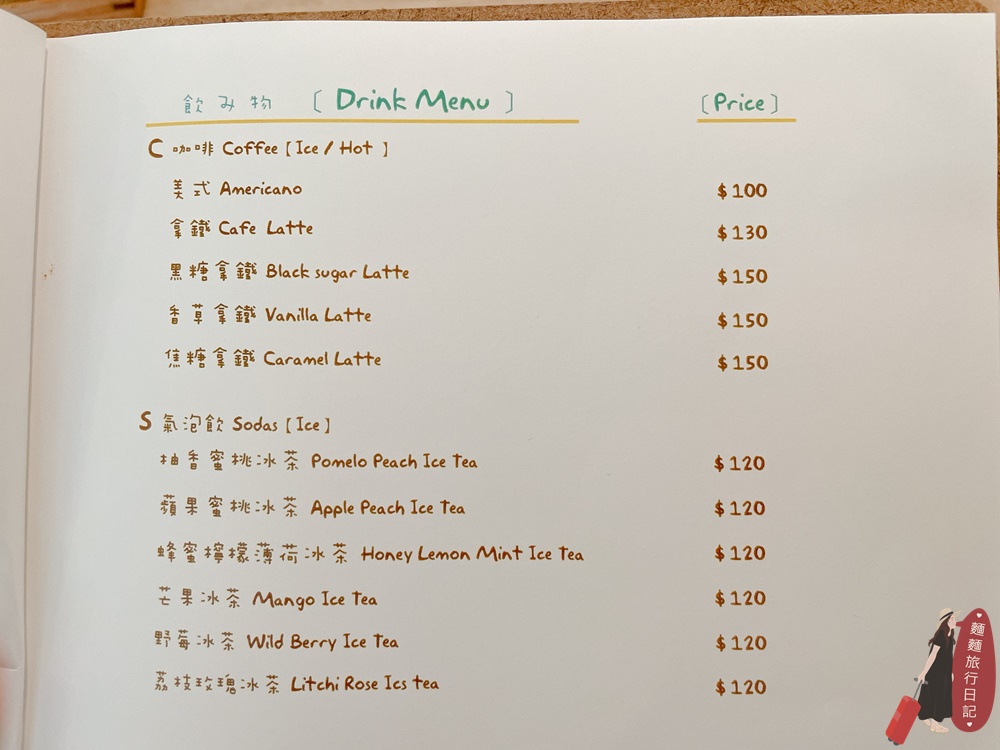 飲み物 [ Drink Menu ] [ Price ]
C 咖啡 Coffee [ Ice / Hot ]
美式 Americano $100
拿鐵 Cafe Latte $130
黑糖拿鐵 Black sugar Latte $150
香草拿鐵 Vanilla Latte $150
焦糖拿鐵 Caramel Latte $150
S 氣泡飲 Sodas [ Ice ]
柚香蜜桃冰茶 Pomelo Peach Ice Tea $120
蘋果蜜桃冰茶 Apple Peach Ice Tea $120
蜂蜜檸檬薄荷冰茶 Honey Lemon Mint Ice Tea $120
芒果冰茶 Mango Ice Tea $120
野莓冰茶 Wild Berry Ice Tea $120
荔枝玫瑰冰茶 Litchi Rose Ics tea $120
麵麵旅行日記